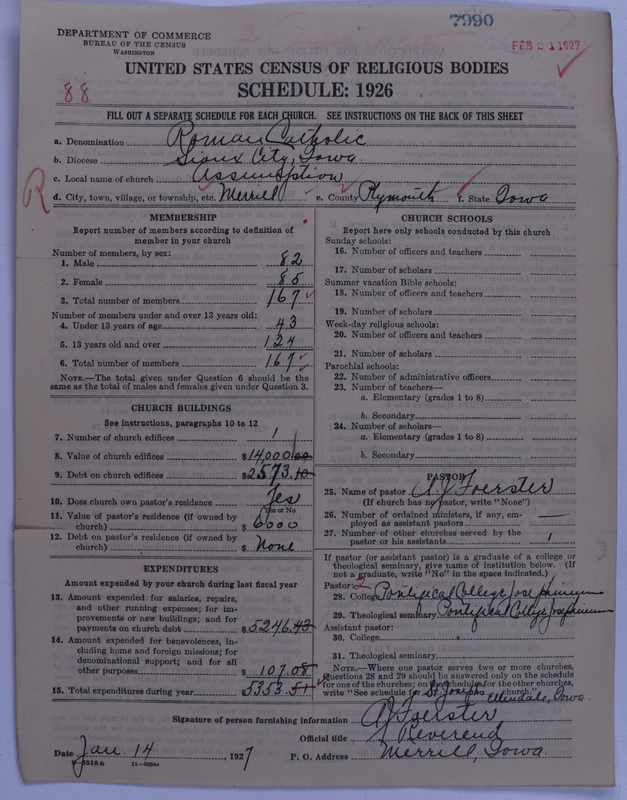 7990
DEPARTMENT OF COMMERCE
BUREAU OF THE CENSUS
WASHINGTON
FEB 21 1927
UNITED STATES CENSUS OF RELIGIOUS BODIES
SCHEDULE: 1926
88
FILL OUT A SEPARATE SCHEDULE FOR EACH CHURCH. SEE INSTRUCTIONS ON THE BACK OF THIS SHEET
a. Denomination Roman Catholic
b. Diocese Sioux City, Iowa
c. Local name of church Assumption
R
d. City, town, village, or township, etc. Merrill e. County Plymouth f. State Iowa
MEMBERSHIP
Report number of members according to definition of
member in your church
Number of members, by sex:
1. Male 82
2. Female 85
3. Total number of members 167
Number of members under and over 13 years old:
4. Under 13 years of age 43
5. 13 years old and over 124
6. Total number of members 167
NOTE.—The total given under Question 6 should be the
same as the total of males and females given under Question 3.
CHURCH BUILDINGS
See instructions, paragraphs 10 to 12
7. Number of church edifices 1
8. Value of church edifices $14,000.00
9. Debt on church edifices $2573.10
10. Does church own pastor's residence Yes
Yes or No
11. Value of pastor's residence (if owned by
church) $ 6000
12. Debt on pastor's residence (if owned by
church) $ None
EXPENDITURES
Amount expended by your church during last fiscal year
13. Amount expended for salaries, repairs,
and other running expenses; for im-
provements or new buildings; and for
payments on church debt $5246.43
14. Amount expended for benevolences, in-
cluding home and foreign missions; for
denominational support; and for all
other purposes $ 107.08
15. Total expenditures during year $5353.51
CHURCH SCHOOLS
Report here only schools conducted by this church
Sunday schools:
16. Number of officers and teachers
17. Number of scholars
Summer vacation Bible schools:
18. Number of officers and teachers
19. Number of scholars
Week-day religious schools:
20. Number of officers and teachers
21. Number of scholars
Parochial schools:
22. Number of administrative officers
23. Number of teachers—
a. Elementary (grades 1 to 8)
b. Secondary
24. Number of scholars—
a. Elementary (grades 1 to 8)
b. Secondary
PASTOR
25. Name of pastor A. J. Foerster
(If church has no pastor, write "None")
26. Number of ordained ministers, if any, em-
ployed as assistant pastors —
27. Number of other churches served by the
pastor or his assistants 1
If pastor (or assistant pastor) is a graduate of a college or
theological seminary, give name of institution below. (If
not a graduate, write "No" in the space indicated.)
Pastor: 2
28. College Pontifical College Josephinum
29. Theological seminary Pontifical College Josephinum
Assistant pastor:
30. College
31. Theological seminary
NOTE.—Where one pastor serves two or more churches,
Questions 28 and 29 should be answered only on the schedule
for one of the churches; on the schedules for the other churches,
write "See schedule for St Josephs church." Ellendale, Iowa.
Signature of person furnishing information A J Foerster
Official title Reverend
Date Jan. 14, 1927 P. O. Address Merrill, Iowa